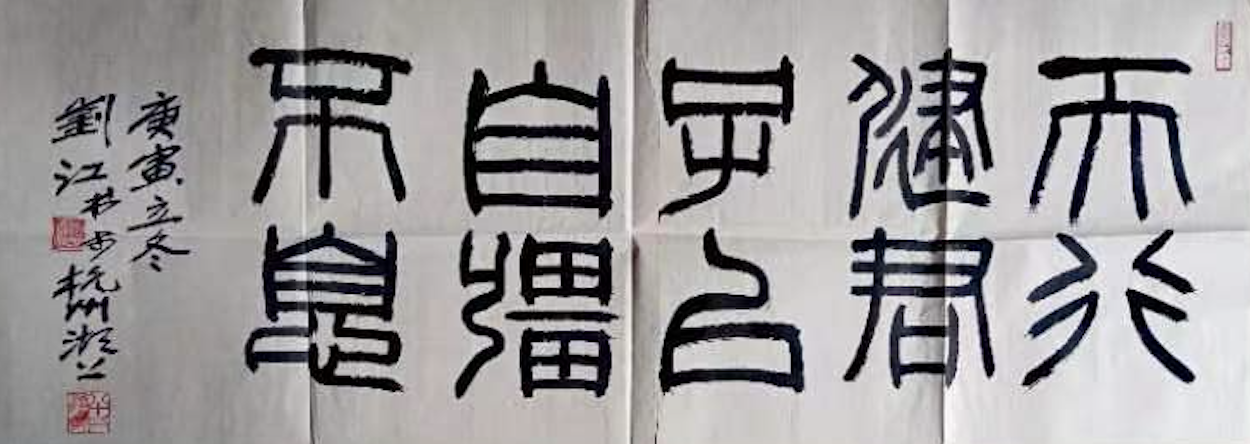 天行
健君
子以
自彊
不息
庚寅立冬
劉江书於杭州湖上